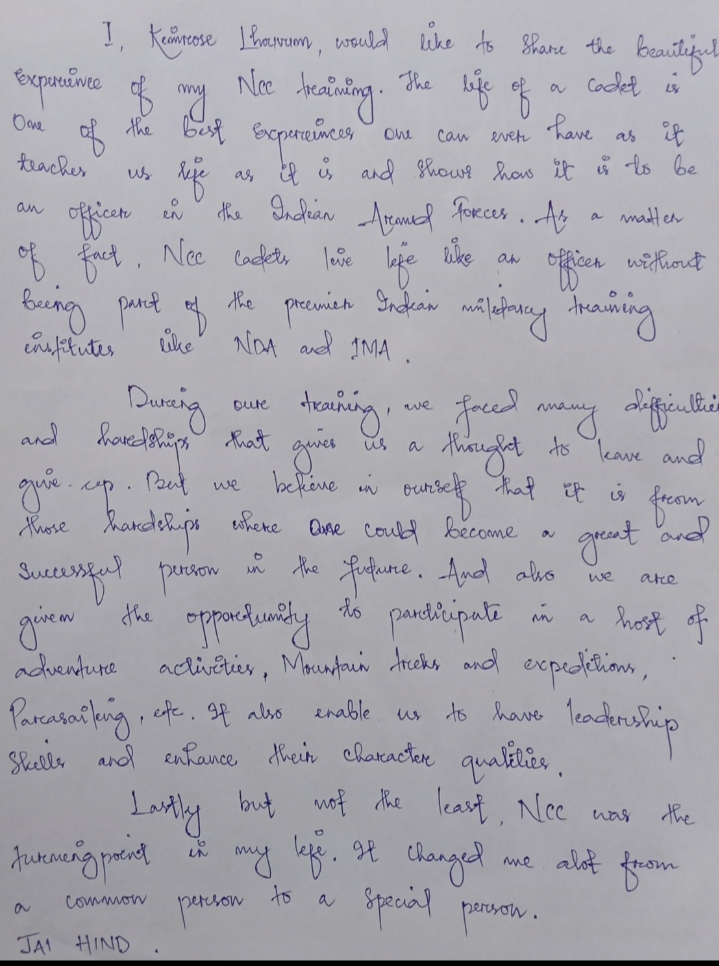 I, Kemreose Lhouvum, would like to share the beautiful
Experience of my Ncc training. The life of a Cadet is
One of the best experiences one can ever have as it
teaches us life as it is and shows how it is to be
an officer in the Indian Armed Forces. As a matter
of fact, Ncc cadets live life like an officer without
being part of the premier Indian military training
institutes like NDA and IMA.
During our training, we faced many difficulties
and hardships that gives us a thought to leave and
give-up. But we believe in ourself that it is from
those hardships where one could become a great and
Successful person in the future. And also we are
given the opportunity to participate in a host of
adventure activities, Mountain treks and expeditions,
Parasailing, etc. It also enable us to have leadership
Skills and enhance their character qualities.
Lastly but not the least, Ncc was the
turning point in my life. It changed me alot from
a common person to a special person.
JAI HIND.